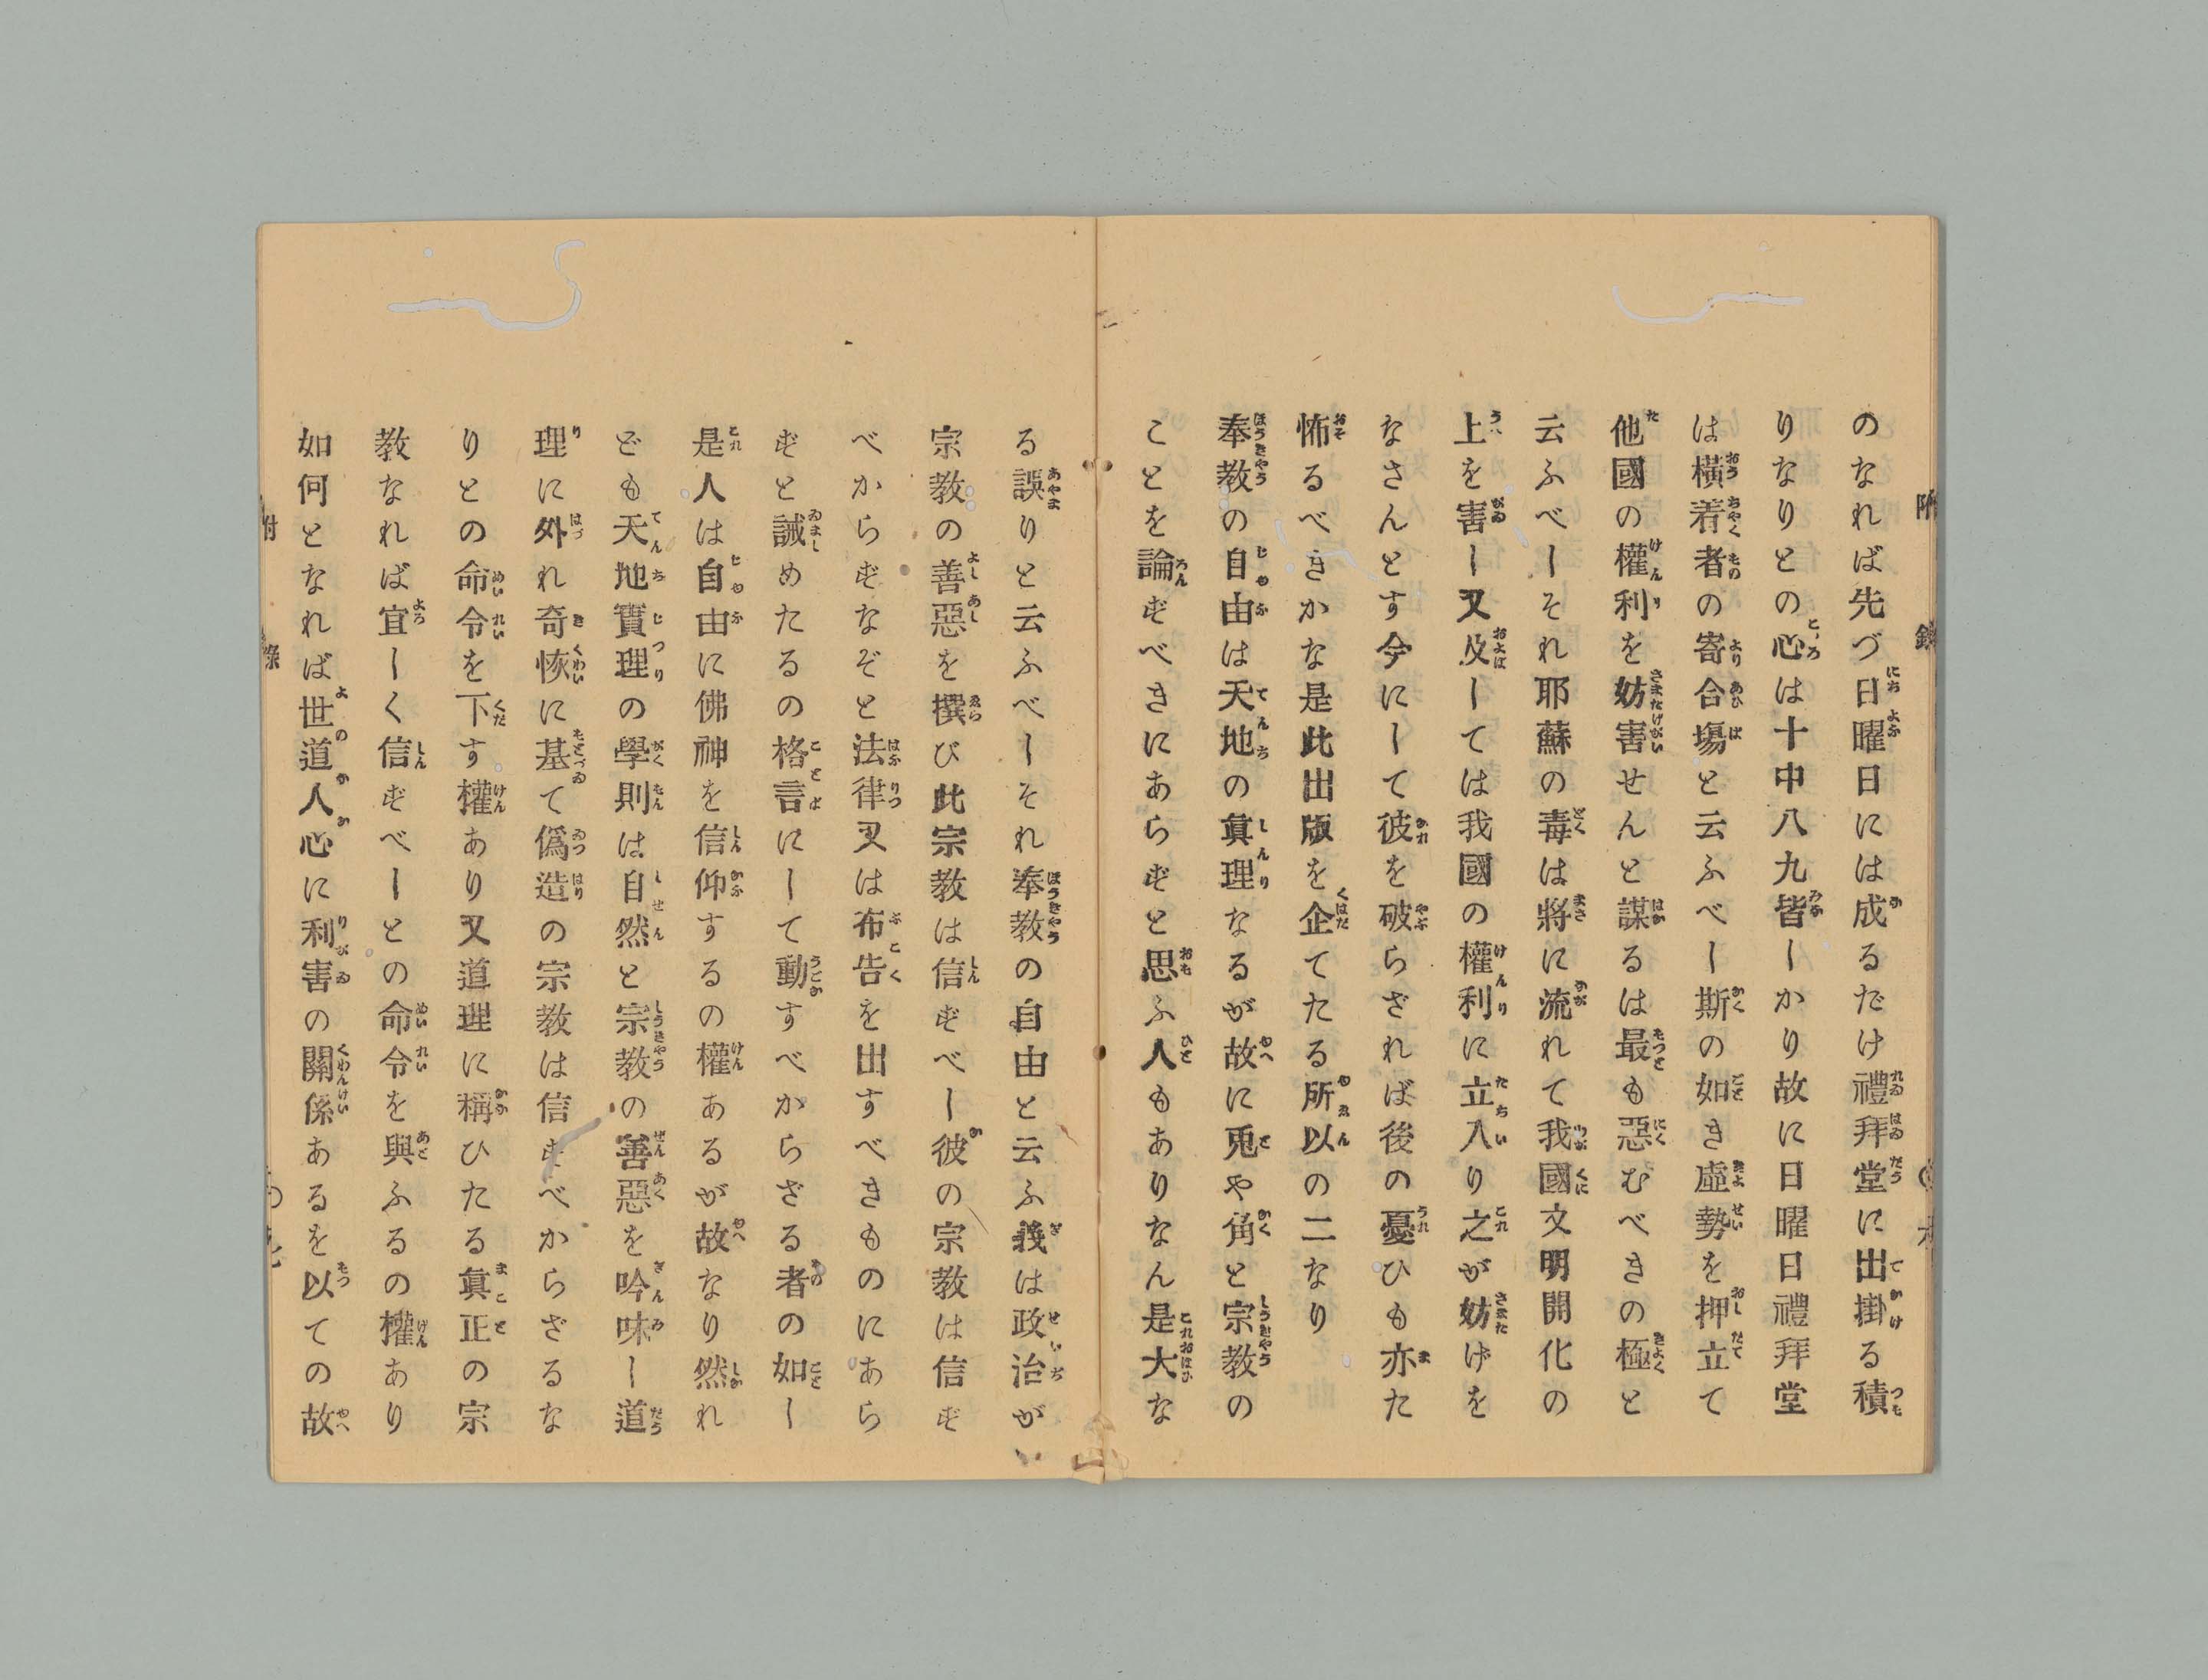 のなれば先づ日曜日には成るだけ禮拜堂に出掛る積
りなりとの心は十中八九皆しかり故に日曜日禮拜堂
は橫着者の寄合塲と云ふべし斯の如き虛勢を押立て
他國の權利を妨害せんと謀るは最も惡むべきの極と
云ふべしそれ耶蘇の毒は將に流れて我國文明開化の
上を害し又及しては我國の權利に立入り之が妨げを
なさんとす今にして彼を破らざれば後の憂ひも亦た
怖るべきかな是此出版を企てたる所以の二なり
奉教の自由は天地の眞理なるが故に兎や角と宗教の
ことを論ずべきにあらずと思ふ人もありなん是大な
る誤りと云ふべしそれ奉教の自由と云ふ義は政治が
宗教の善惡を撰び此宗教は信ずべし彼の宗教は信ず
べからずなぞと法律又は布告を出すべきものにあら
ずと誡めたるの格言にして動すべからざる者の如し
是人は自由に佛神を信仰するの權あるが故なり然れ
ども天地實理の學則は自然と宗教の善惡を吟味し道
理に外れ奇恠に基て僞造の宗教は信ずべからざるな
りとの命令を下す權あり又道理に稱ひたる眞正の宗
教なれば宜しく信ずべしとの命令を與ふるの權あり
如何となれば世道人心に利害の關係あるを以ての故
附錄